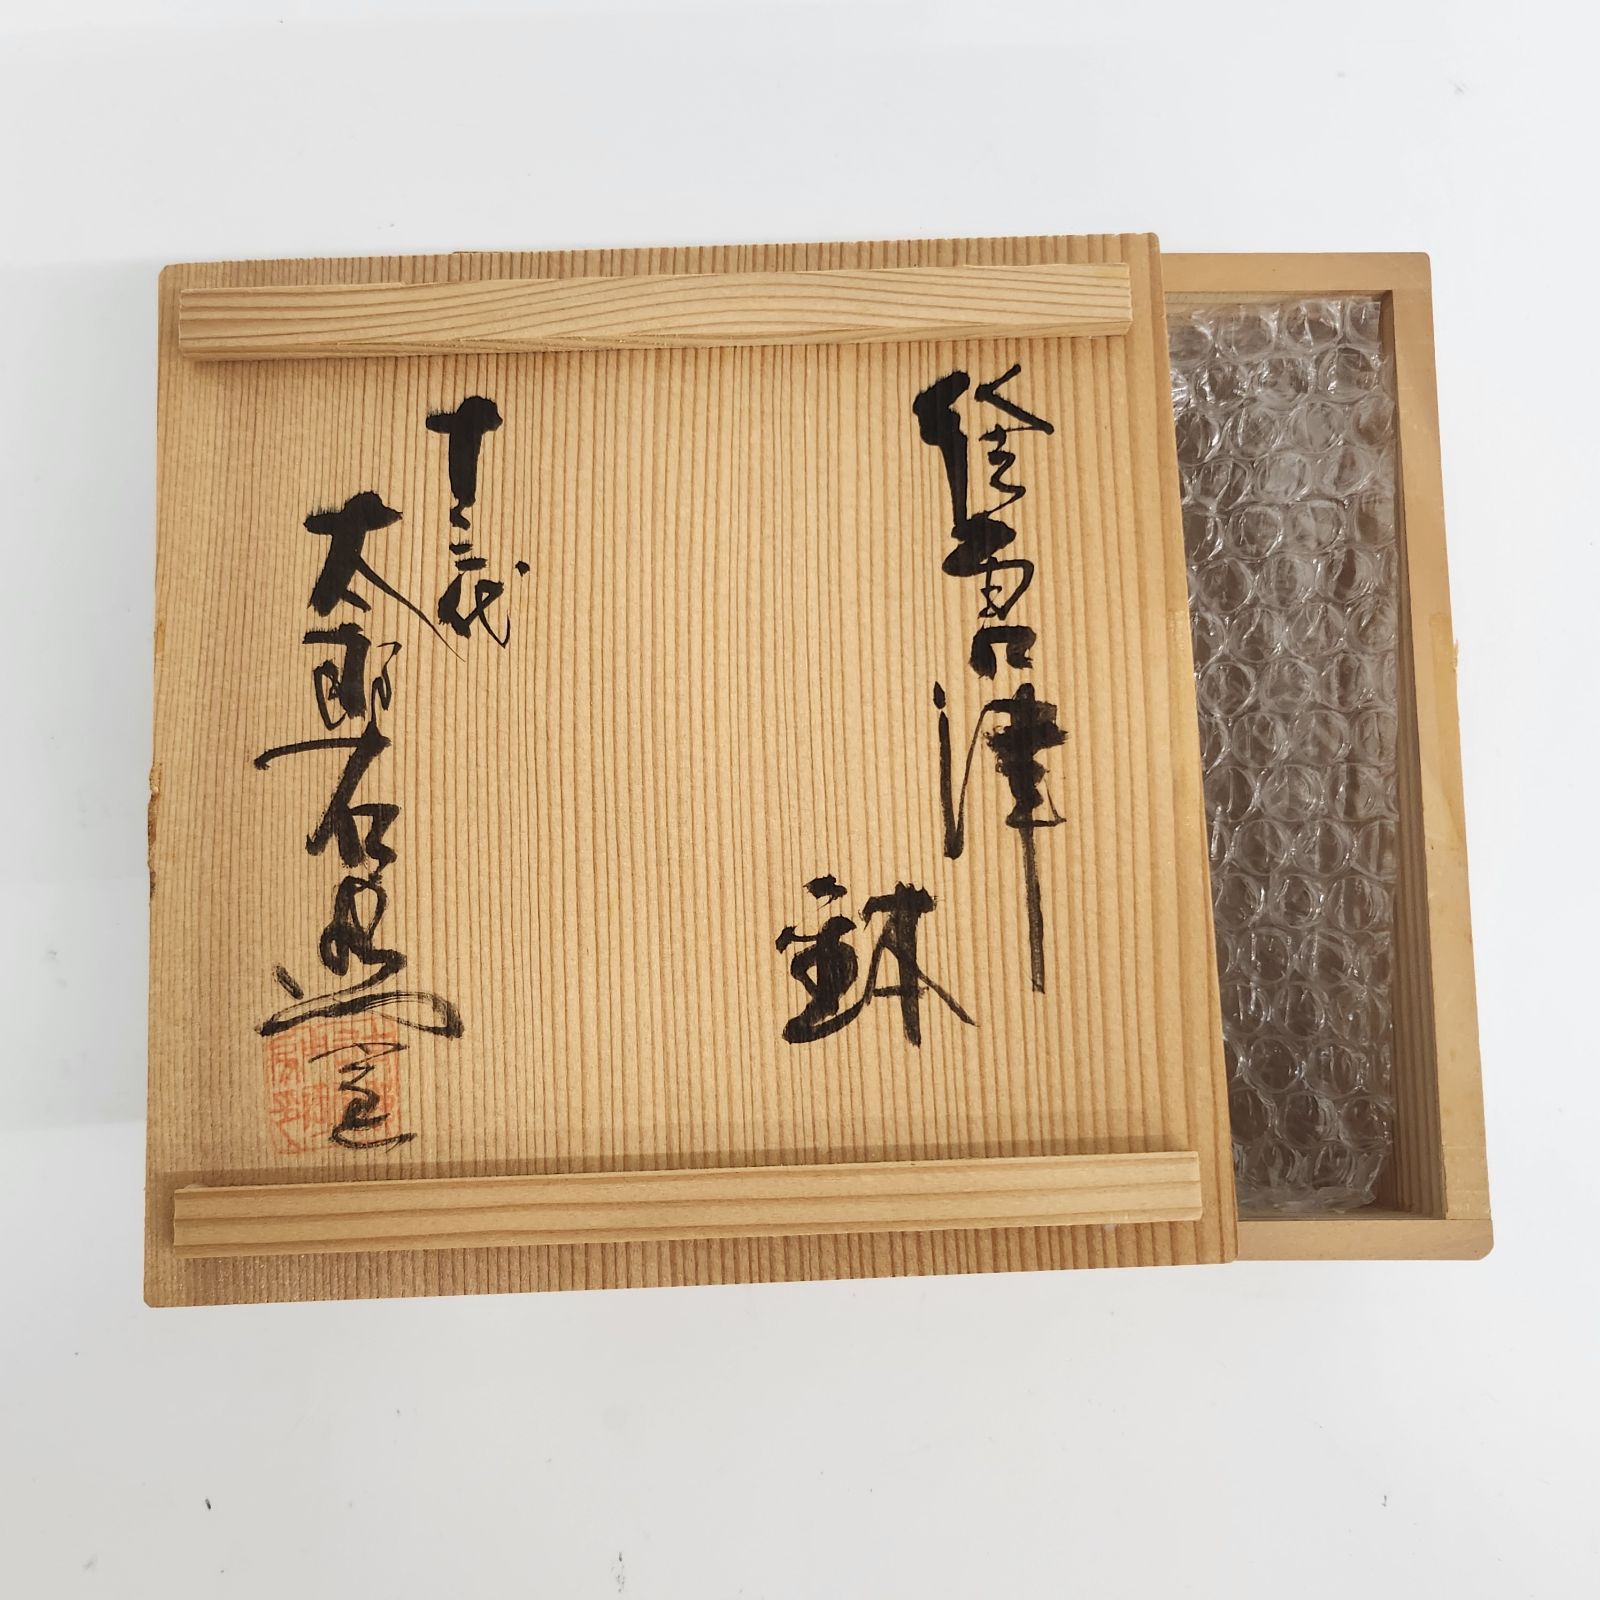 絵唐津
鉢
十三代
太郎右衛門
造